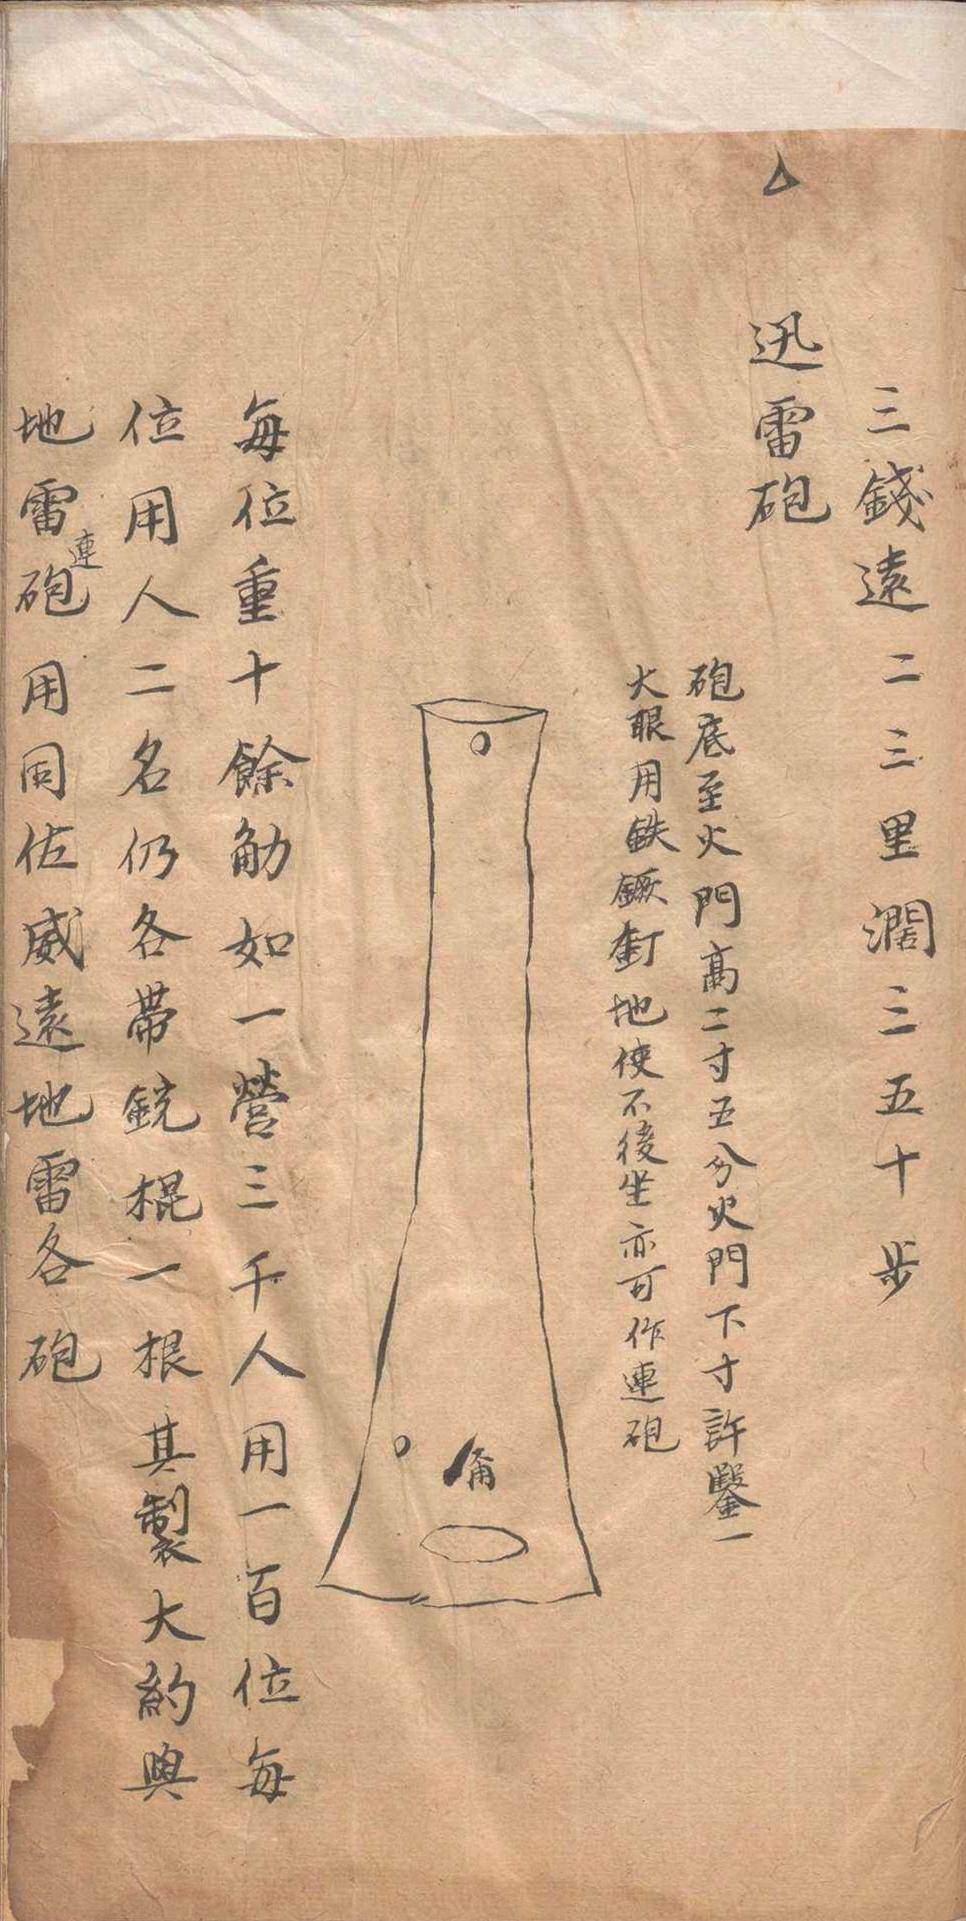 三錢遠二三里濶三五十步
迅雷砲
砲底至火門高二寸五分火門下寸許鑿一
大眼用鉄鐝釘地使不後坐亦可作連砲
每位重十餘觔如一營三千人用一百位每
位用人二名仍各帶銃棍一根其製大約與
地雷連砲用同佐威遠地雷各砲